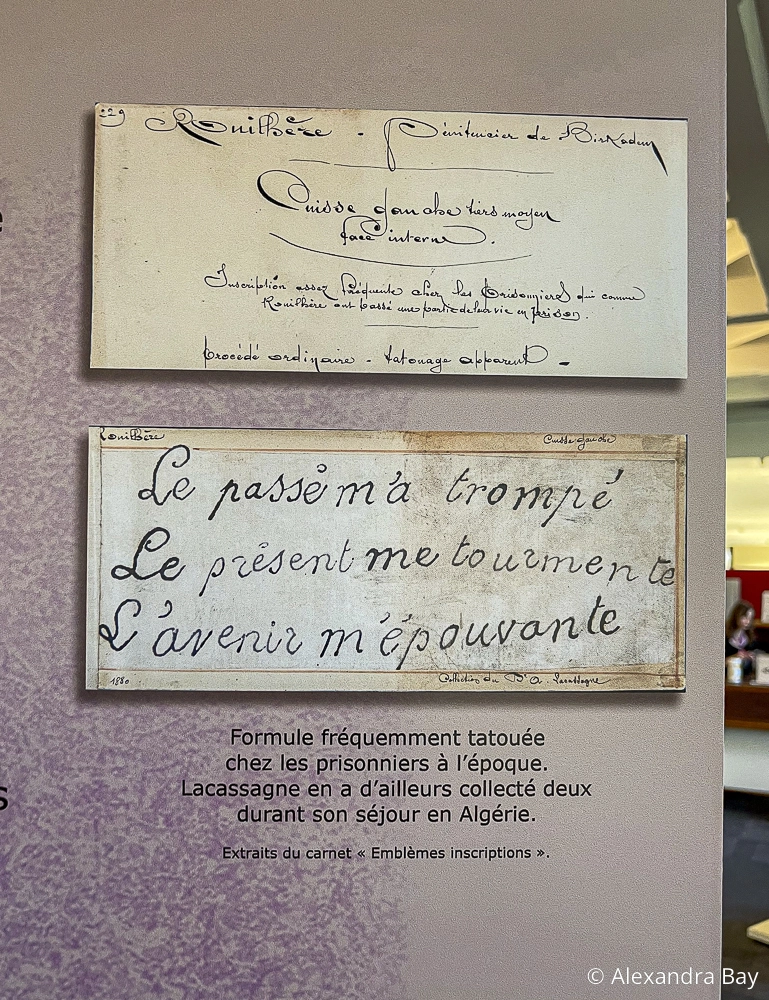 229 Rouilhère - Pénitencier de Birkadem
Cuisse gauche tiers moyen
face interne.
Inscription assez fréquente chez les Prisonniers qui comme
Rouilhère ont passé une partie de leur vie en prison.
procédé ordinaire - tatouage apparent -
Rouilhère Cuisse gauche
Le passé m'a trompé
Le présent me tourmente
L'avenir m'épouvante
1880 Collection du Dr A. Lacassagne
Formule fréquemment tatouée
chez les prisonniers à l'époque.
Lacassagne en a d'ailleurs collecté deux
durant son séjour en Algérie.
Extraits du carnet « Emblèmes inscriptions ».
© Alexandra Bay